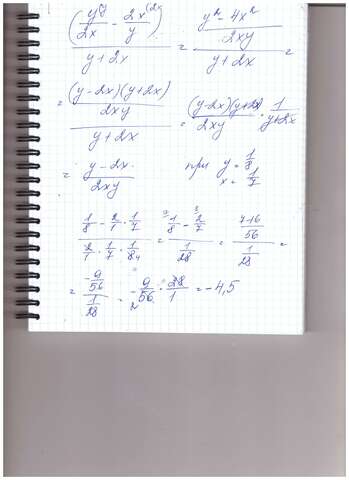 (y⁽ʸ/2x - 2x⁽²ˣ/y) / (y+2x) = ((y² - 4x²)/2xy) / (y+2x) =
= ((y-2x)(y+2x)/2xy) / (y+2x) = (y-2x)(y+2x)/2xy · 1/(y+2x)
= (y-2x)/2xy при y = 1/8 x = 1/7
(1/8 - 2/1 · 1/7) / (2/1 · 1/7 · 1/8₄) = (1/8 - 2/7) / (1/28) = ((7-16)/56) / (1/28) =
= (-9/56) / (1/28) = -9/56 · 28/1 = -4,5